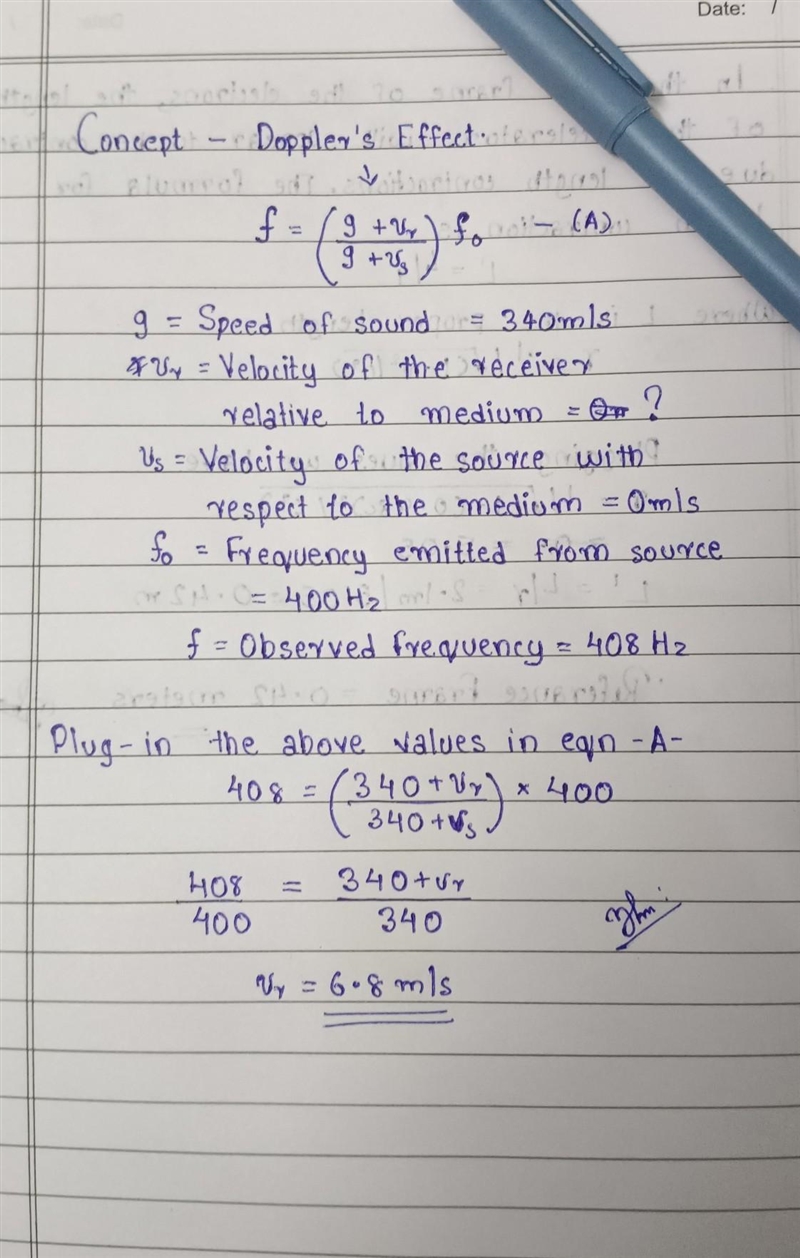 Date: /
Concept - Doppler's Effect.
↓
f = (g + vr / g + vs) f₀ - (A)
g = Speed of sound = 340m/s
vr = Velocity of the receiver
relative to medium = ?
vs = Velocity of the source with
respect to the medium = 0m/s
f₀ = Frequency emitted from source
= 400Hz
f = Observed frequency = 408 Hz
Plug-in the above values in eqn -A-
408 = (340 + vr / 340 + vs) × 400
408 / 400 = 340 + vr / 340
vr = 6.8 m/s